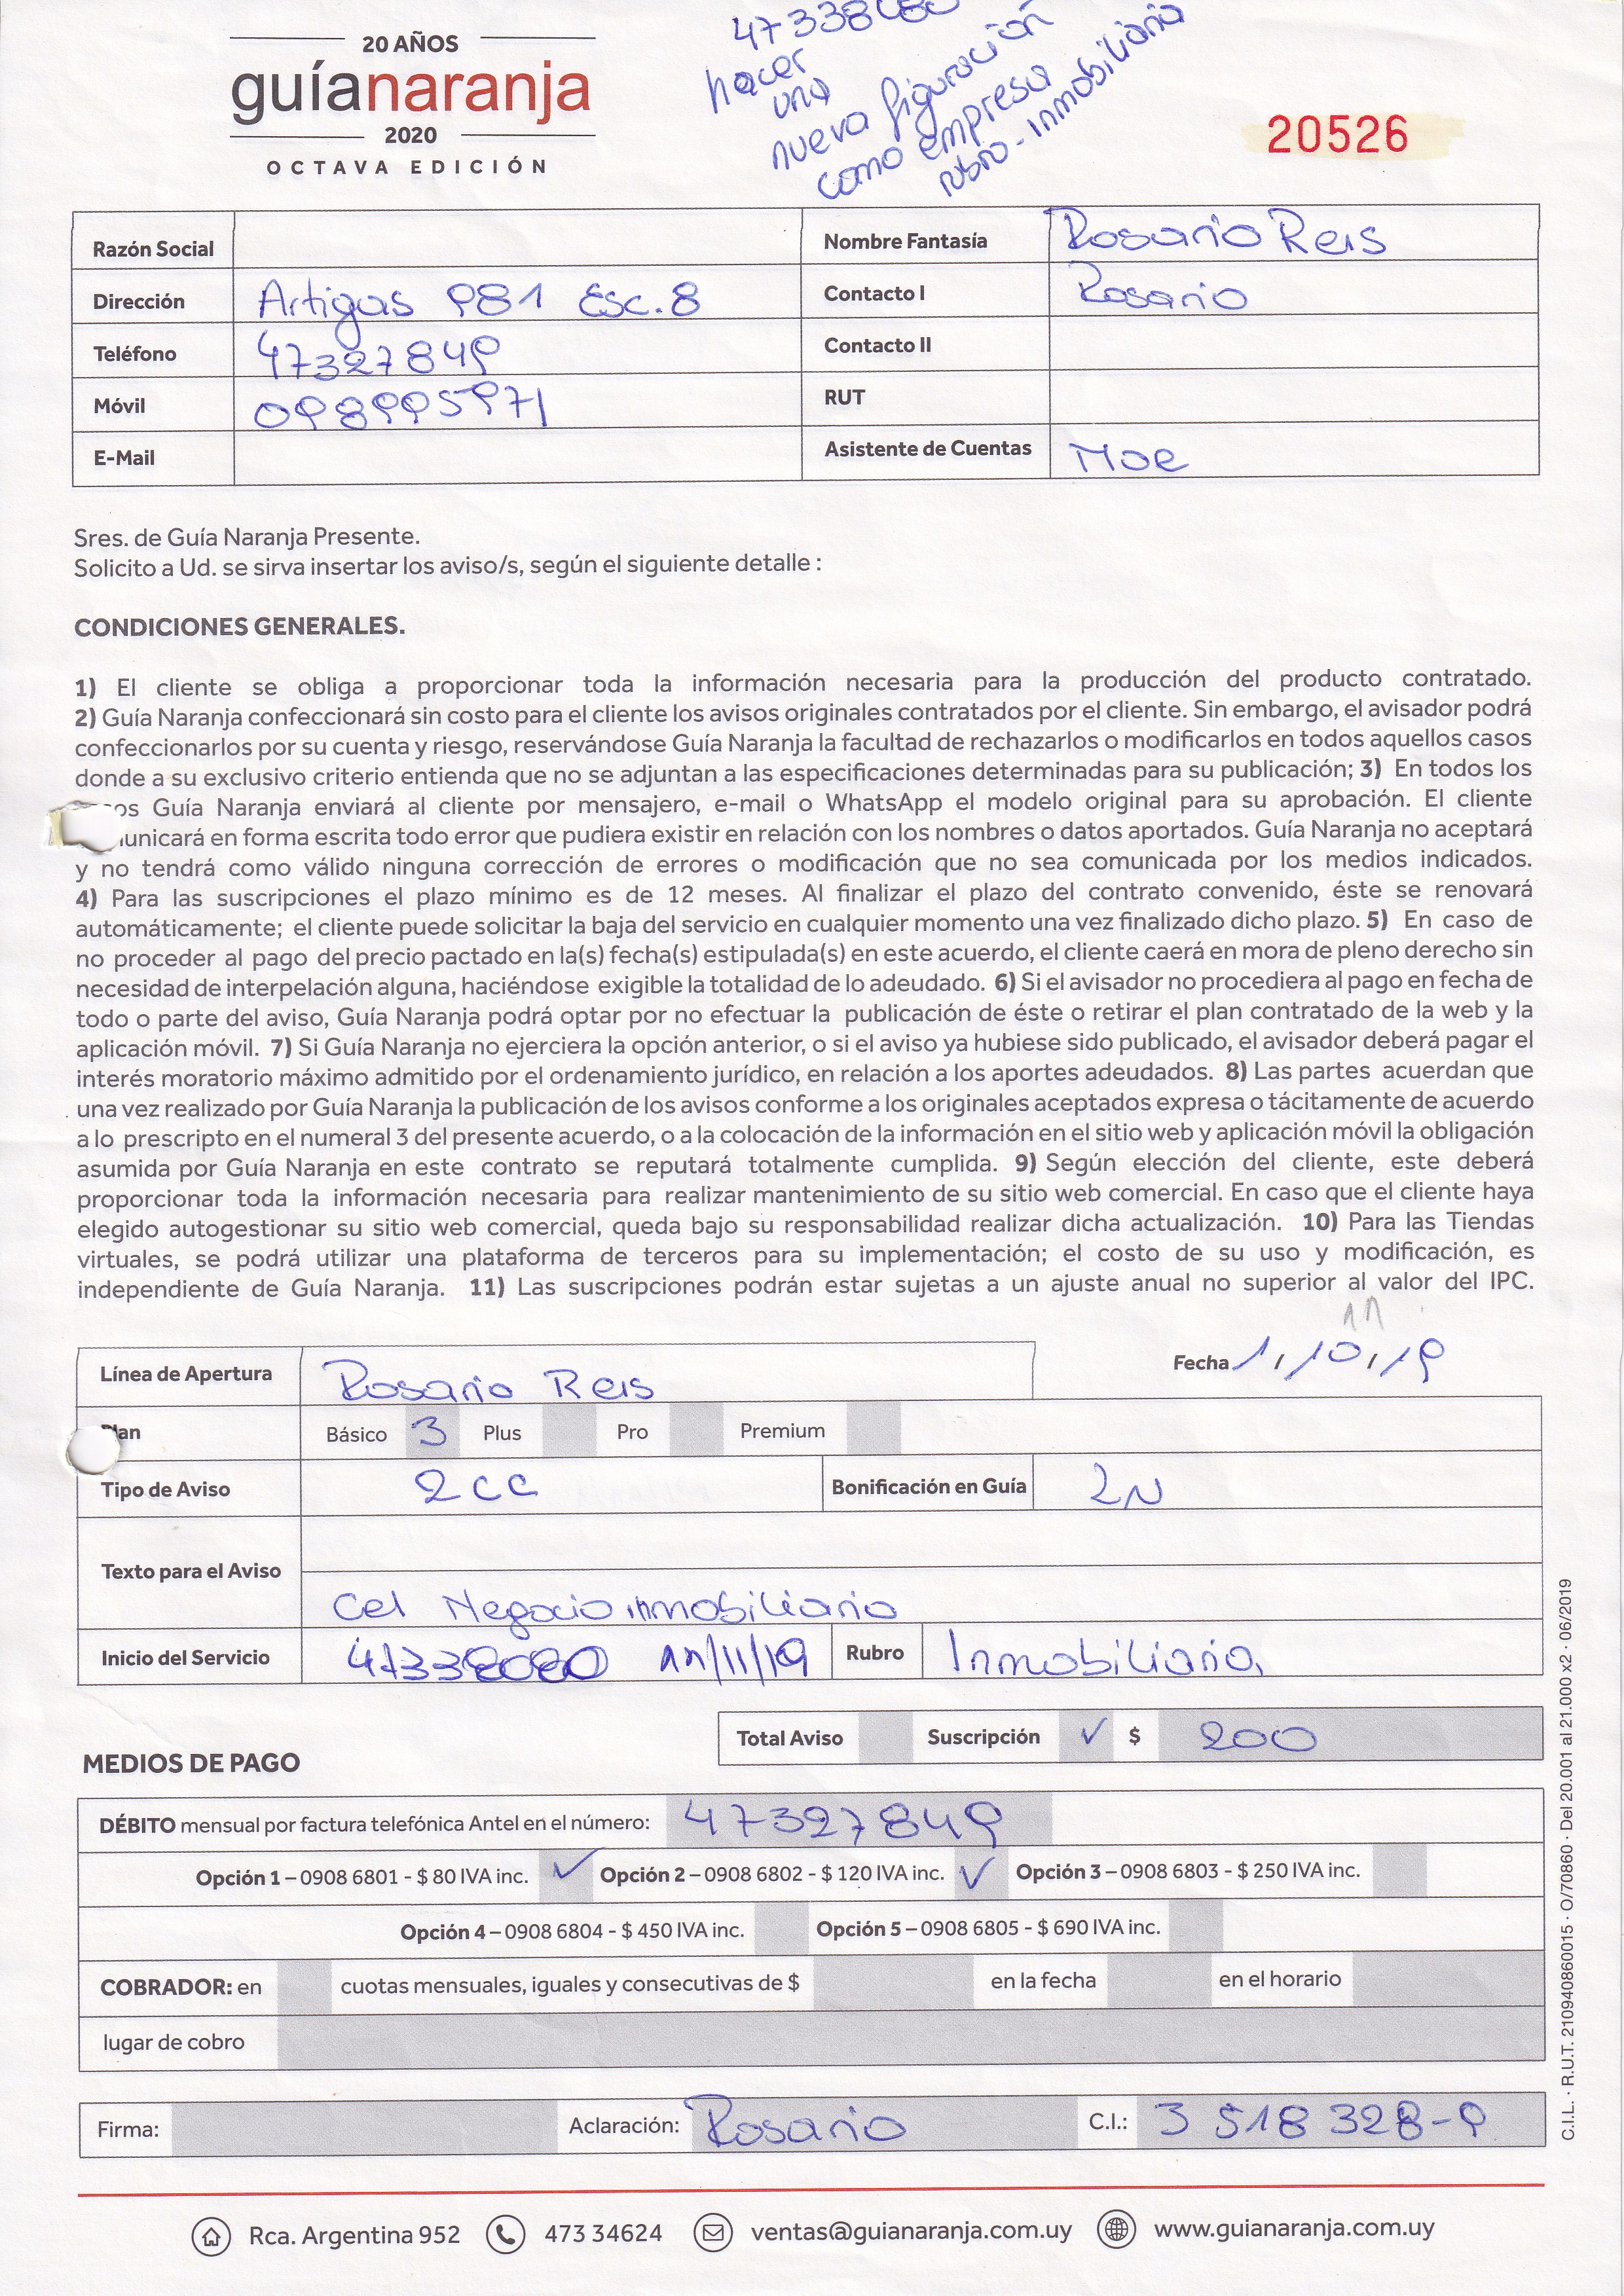 20 AÑOS
guíanaranja
2020
OCTAVA EDICIÓN
hacer
una
nueva figuración
como empresa
rubro - Inmobiliaria
20526
Razón Social
Nombre Fantasía Rosario Reis
Dirección Artigas 981 Esc.8
Contacto I Rosario
Teléfono 47327849
Contacto II
Móvil 098995971
RUT
E-Mail
Asistente de Cuentas Moe
Sres. de Guía Naranja Presente.
Solicito a Ud. se sirva insertar los aviso/s, según el siguiente detalle :
CONDICIONES GENERALES.
1) El cliente se obliga a proporcionar toda la información necesaria para la producción del producto contratado.
2) Guía Naranja confeccionará sin costo para el cliente los avisos originales contratados por el cliente. Sin embargo, el avisador podrá
confeccionarlos por su cuenta y riesgo, reservándose Guía Naranja la facultad de rechazarlos o modificarlos en todos aquellos casos
donde a su exclusivo criterio entienda que no se adjuntan a las especificaciones determinadas para su publicación; 3) En todos los
os Guía Naranja enviará al cliente por mensajero, e-mail o WhatsApp el modelo original para su aprobación. El cliente
unicará en forma escrita todo error que pudiera existir en relación con los nombres o datos aportados. Guía Naranja no aceptará
y no tendrá como válido ninguna corrección de errores o modificación que no sea comunicada por los medios indicados.
4) Para las suscripciones el plazo mínimo es de 12 meses. Al finalizar el plazo del contrato convenido, éste se renovará
automáticamente; el cliente puede solicitar la baja del servicio en cualquier momento una vez finalizado dicho plazo. 5) En caso de
no proceder al pago del precio pactado en la(s) fecha(s) estipulada(s) en este acuerdo, el cliente caerá en mora de pleno derecho sin
necesidad de interpelación alguna, haciéndose exigible la totalidad de lo adeudado. 6) Si el avisador no procediera al pago en fecha de
todo o parte del aviso, Guía Naranja podrá optar por no efectuar la publicación de éste o retirar el plan contratado de la web y la
aplicación móvil. 7) Si Guía Naranja no ejerciera la opción anterior, o si el aviso ya hubiese sido publicado, el avisador deberá pagar el
interés moratorio máximo admitido por el ordenamiento jurídico, en relación a los aportes adeudados. 8) Las partes acuerdan que
una vez realizado por Guía Naranja la publicación de los avisos conforme a los originales aceptados expresa o tácitamente de acuerdo
a lo prescripto en el numeral 3 del presente acuerdo, o a la colocación de la información en el sitio web y aplicación móvil la obligación
asumida por Guía Naranja en este contrato se reputará totalmente cumplida. 9) Según elección del cliente, este deberá
proporcionar toda la información necesaria para realizar mantenimiento de su sitio web comercial. En caso que el cliente haya
elegido autogestionar su sitio web comercial, queda bajo su responsabilidad realizar dicha actualización. 10) Para las Tiendas
virtuales, se podrá utilizar una plataforma de terceros para su implementación; el costo de su uso y modificación, es
independiente de Guía Naranja. 11) Las suscripciones podrán estar sujetas a un ajuste anual no superior al valor del IPC.
11
Línea de Apertura Rosario Reis
Fecha 1 / 10 / 19
Plan Básico 3 Plus Pro Premium
Tipo de Aviso 2 CC Bonificación en Guía 2N
Texto para el Aviso
Cel Negocio inmobiliario
Inicio del Servicio 11/11/19 Rubro Inmobiliaria
Total Aviso Suscripción ✓ $ 200
MEDIOS DE PAGO
DÉBITO mensual por factura telefónica Antel en el número: 47327849
Opción 1 – 0908 6801 - $ 80 IVA inc. ✓ Opción 2 – 0908 6802 - $ 120 IVA inc. ✓ Opción 3 – 0908 6803 - $ 250 IVA inc.
Opción 4 – 0908 6804 - $ 450 IVA inc. Opción 5 – 0908 6805 - $ 690 IVA inc.
COBRADOR: en cuotas mensuales, iguales y consecutivas de $ en la fecha en el horario
lugar de cobro
Firma: Aclaración: Rosario C.I.: 3 518 328-9
C.I.L. · R.U.T. 210940860015 · O/70860 · Del 20.001 al 21.000 x2 · 06/2019
Rca. Argentina 952 473 34624 ventas@guianaranja.com.uy www.guianaranja.com.uy